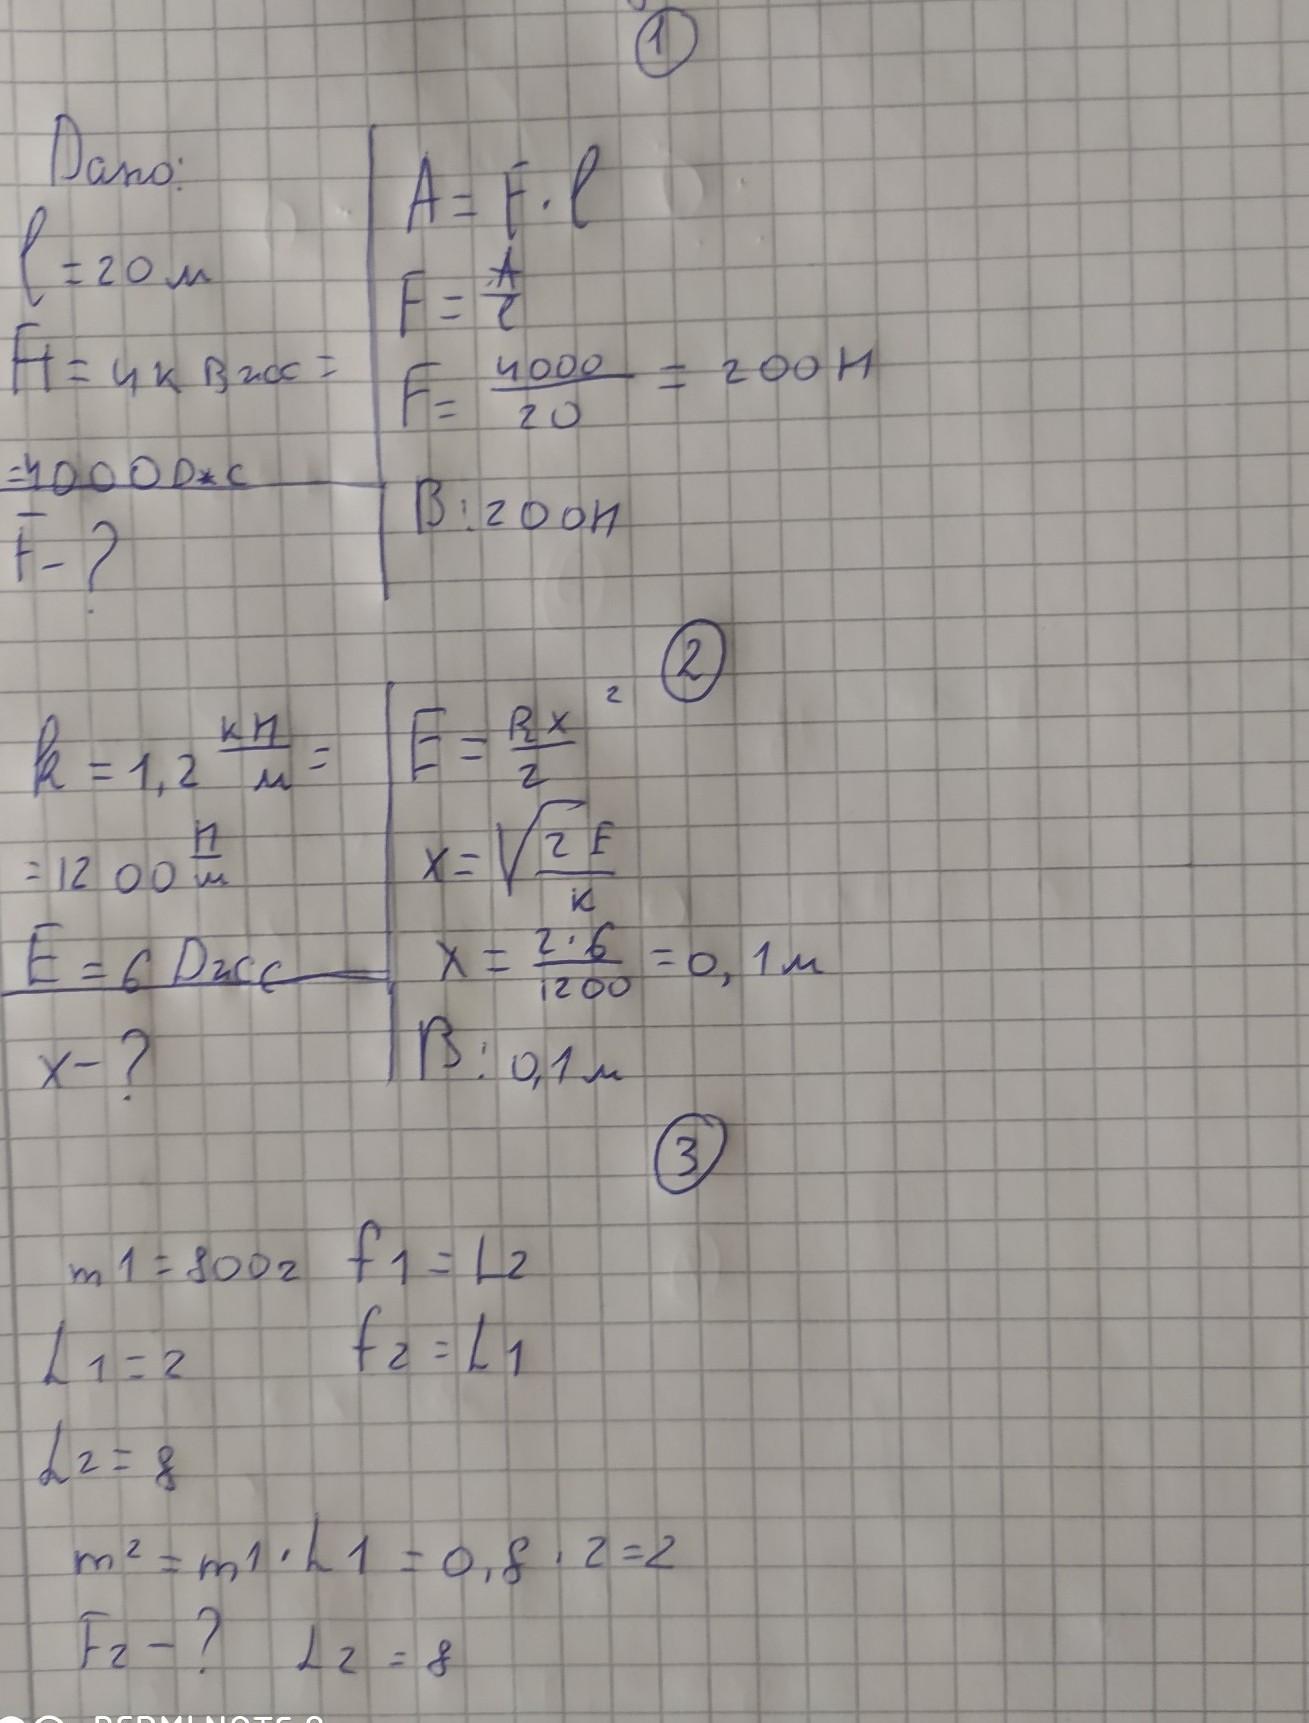 1
Дано:
l = 20 м
A = 4к Дж =
= 4000 Дж
F - ?
A = F · l
F = A/l
F = 4000/20 = 200 Н
В: 200 Н
2
k = 1,2 кН/м =
= 1200 Н/м
E = 6 Дж
x - ?
E = kx²/2
x = √2E/к
x = 2·6/1200 = 0,1 м
В: 0,1 м
3
m1 = 800г f1 = L2
L1 = 2 f2 = L1
L2 = 8
m² = m1 · L1 = 0,8 · 2 = 2
F2 - ? L2 = 8